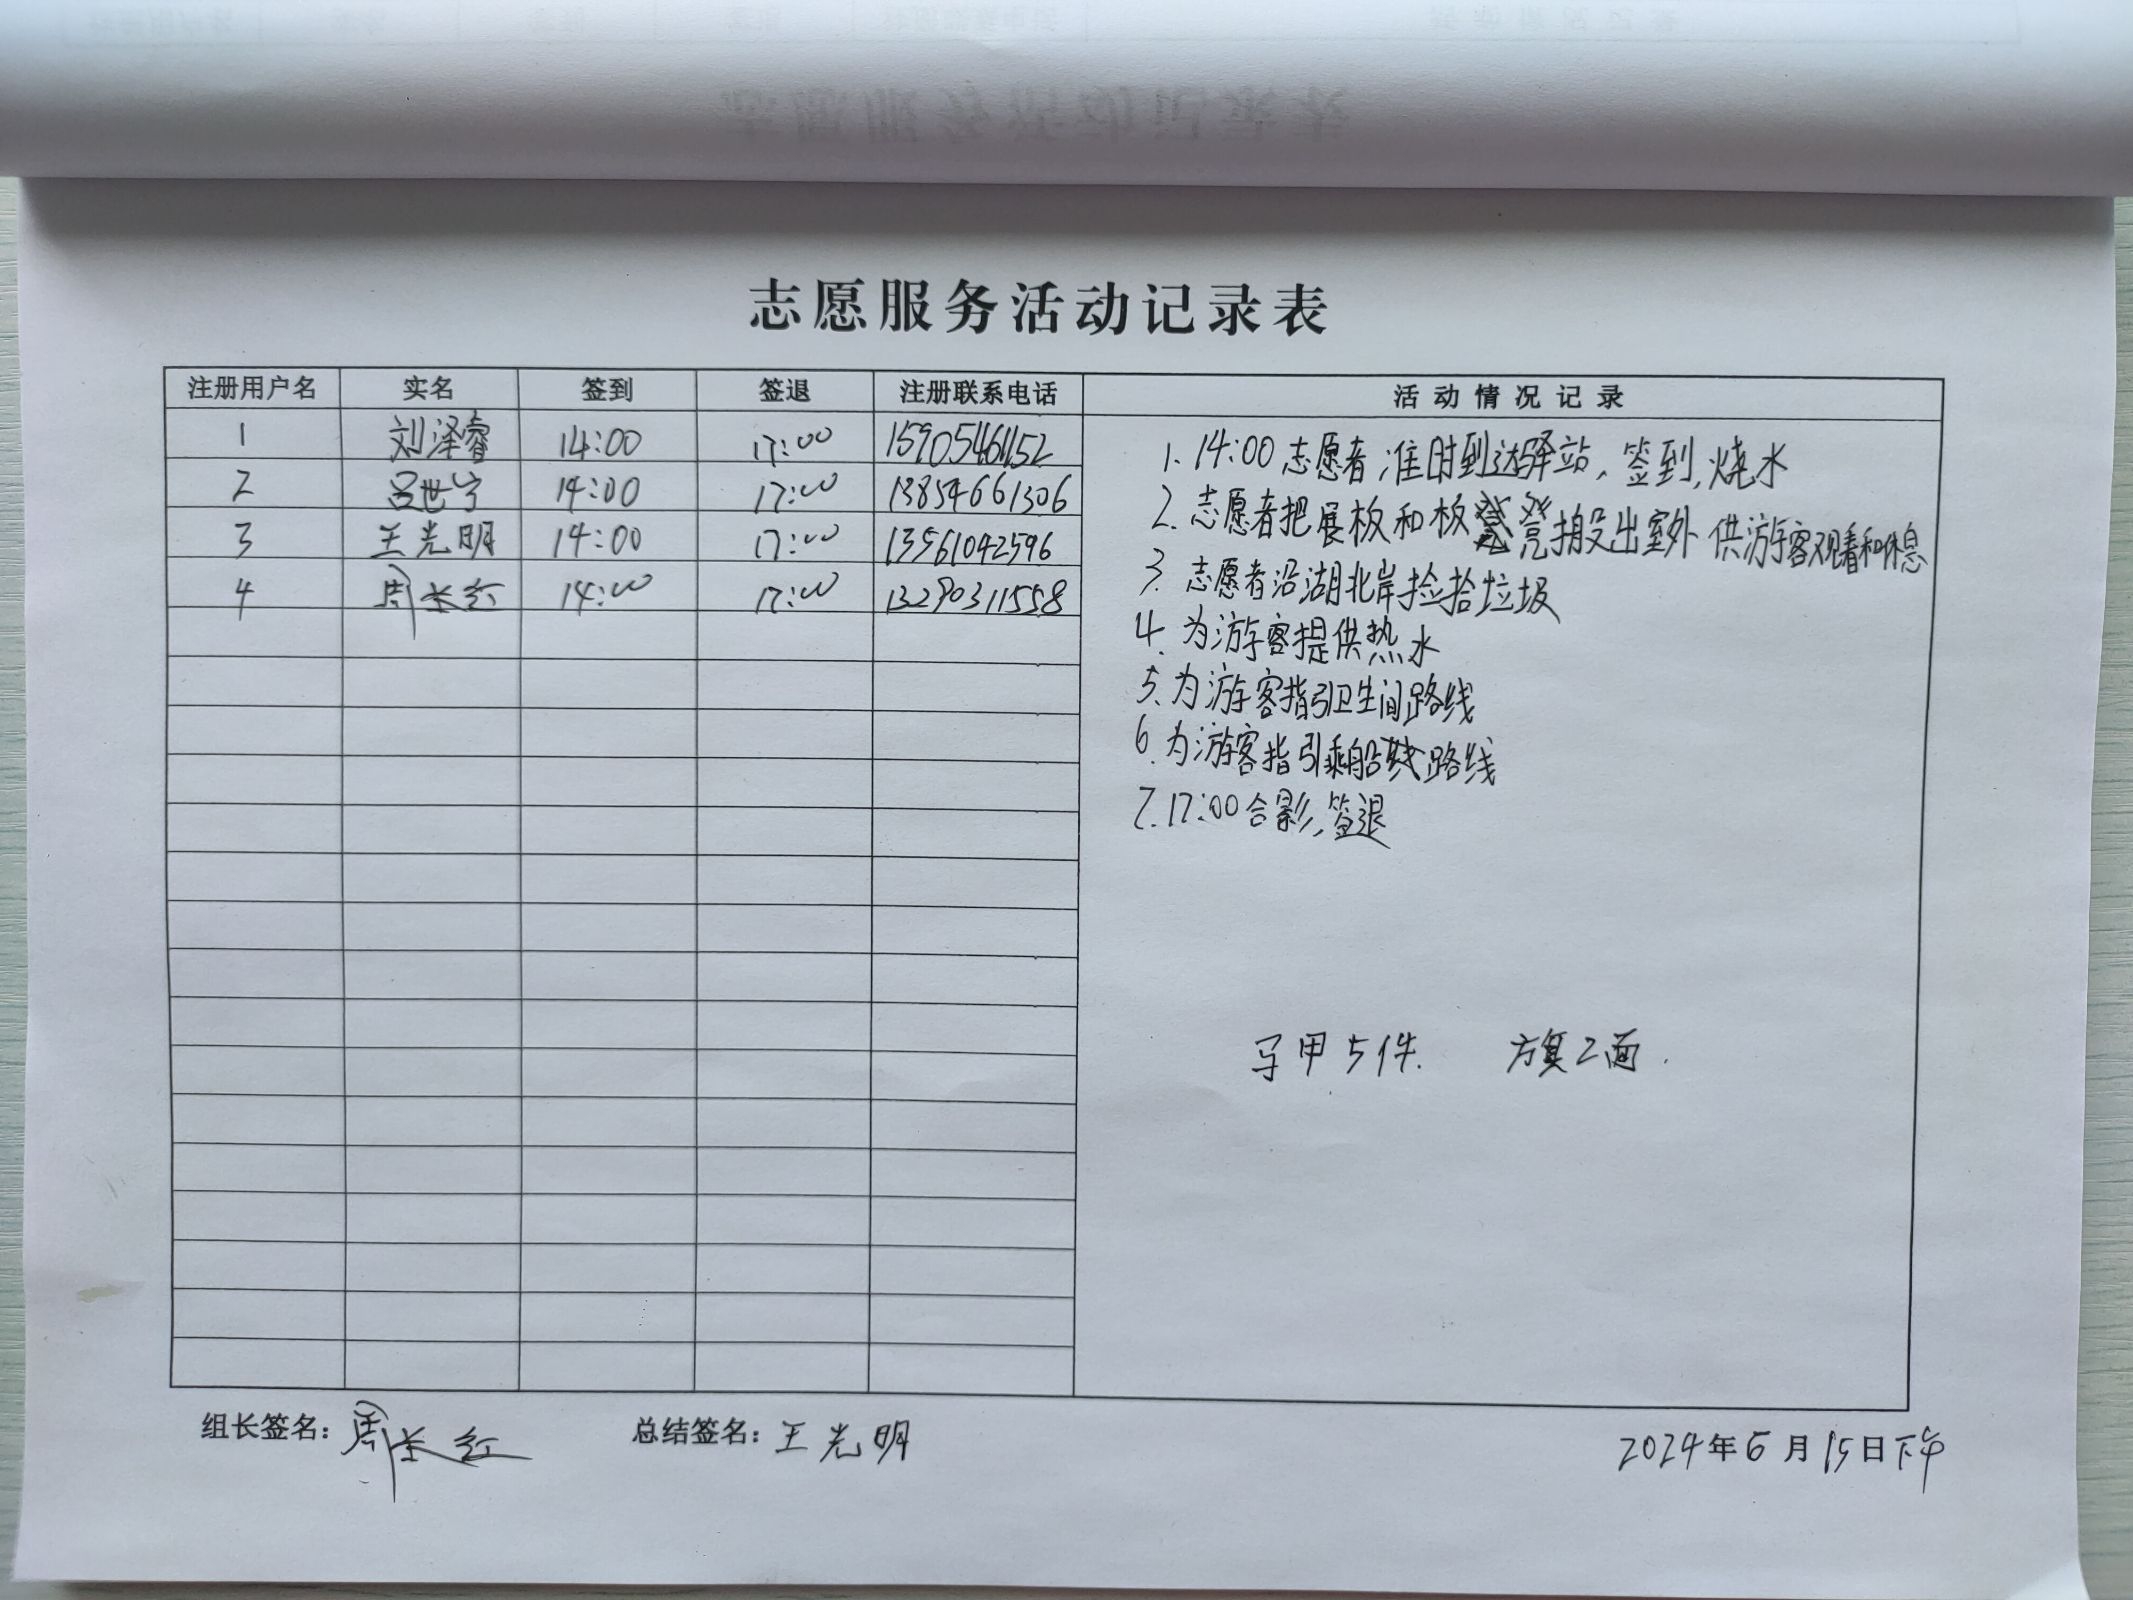 志愿服务活动记录表
注册用户名 实名 签到 签退 注册联系电话 活动情况记录
1 刘泽睿 14:00 17:00 15905461152
2 吕世宁 14:00 17:00 13854661306
3 王光明 14:00 17:00 13561042596
4 周长红 14:00 17:00 13290311558
1. 14:00志愿者准时到达驿站,签到,烧水
2. 志愿者把展板和板凳搬出室外供游客观看和休息
3. 志愿者沿湖北岸捡拾垃圾
4. 为游客提供热水
5. 为游客指引卫生间路线
6. 为游客指引乘船路线
7. 17:00合影,签退
马甲5件. 方旗2面.
组长签名:周长红 总结签名:王光明 2024年6月15日下午